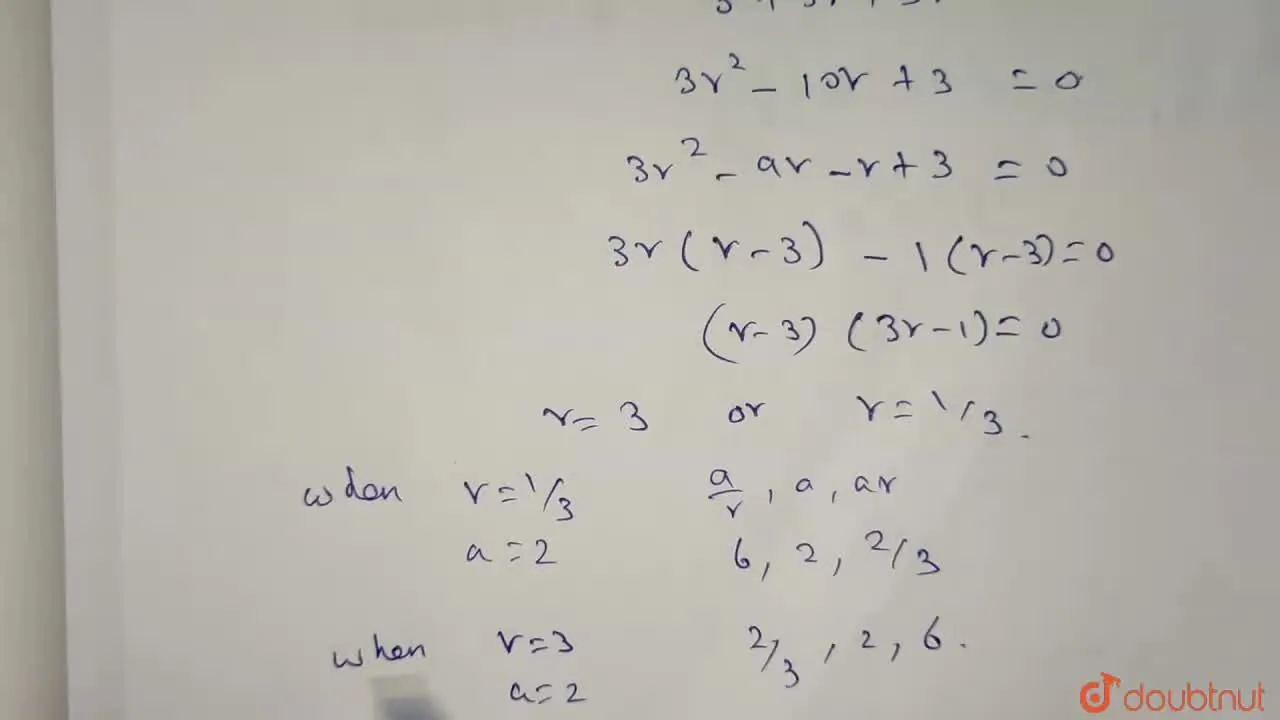 3r² - 10r + 3 = 0
3r² - 9r - r + 3 = 0
3r (r - 3) - 1 (r - 3) = 0
(r - 3) (3r - 1) = 0
r = 3 or r = 1/3.
when r = 1/3 a/r, a, ar
a = 2 6, 2, 2/3
when r = 3 2/3, 2, 6.
a = 2
doubtnut